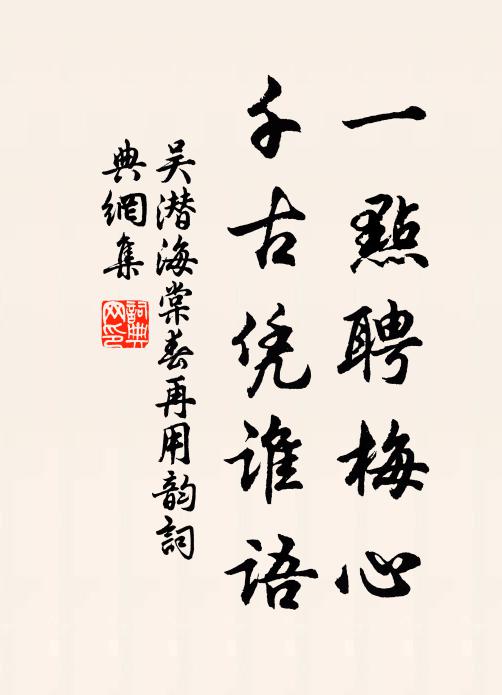 一點聘梅心
千古凭谁语
吴潜海棠春再用韵詞
典網集
詞典网印